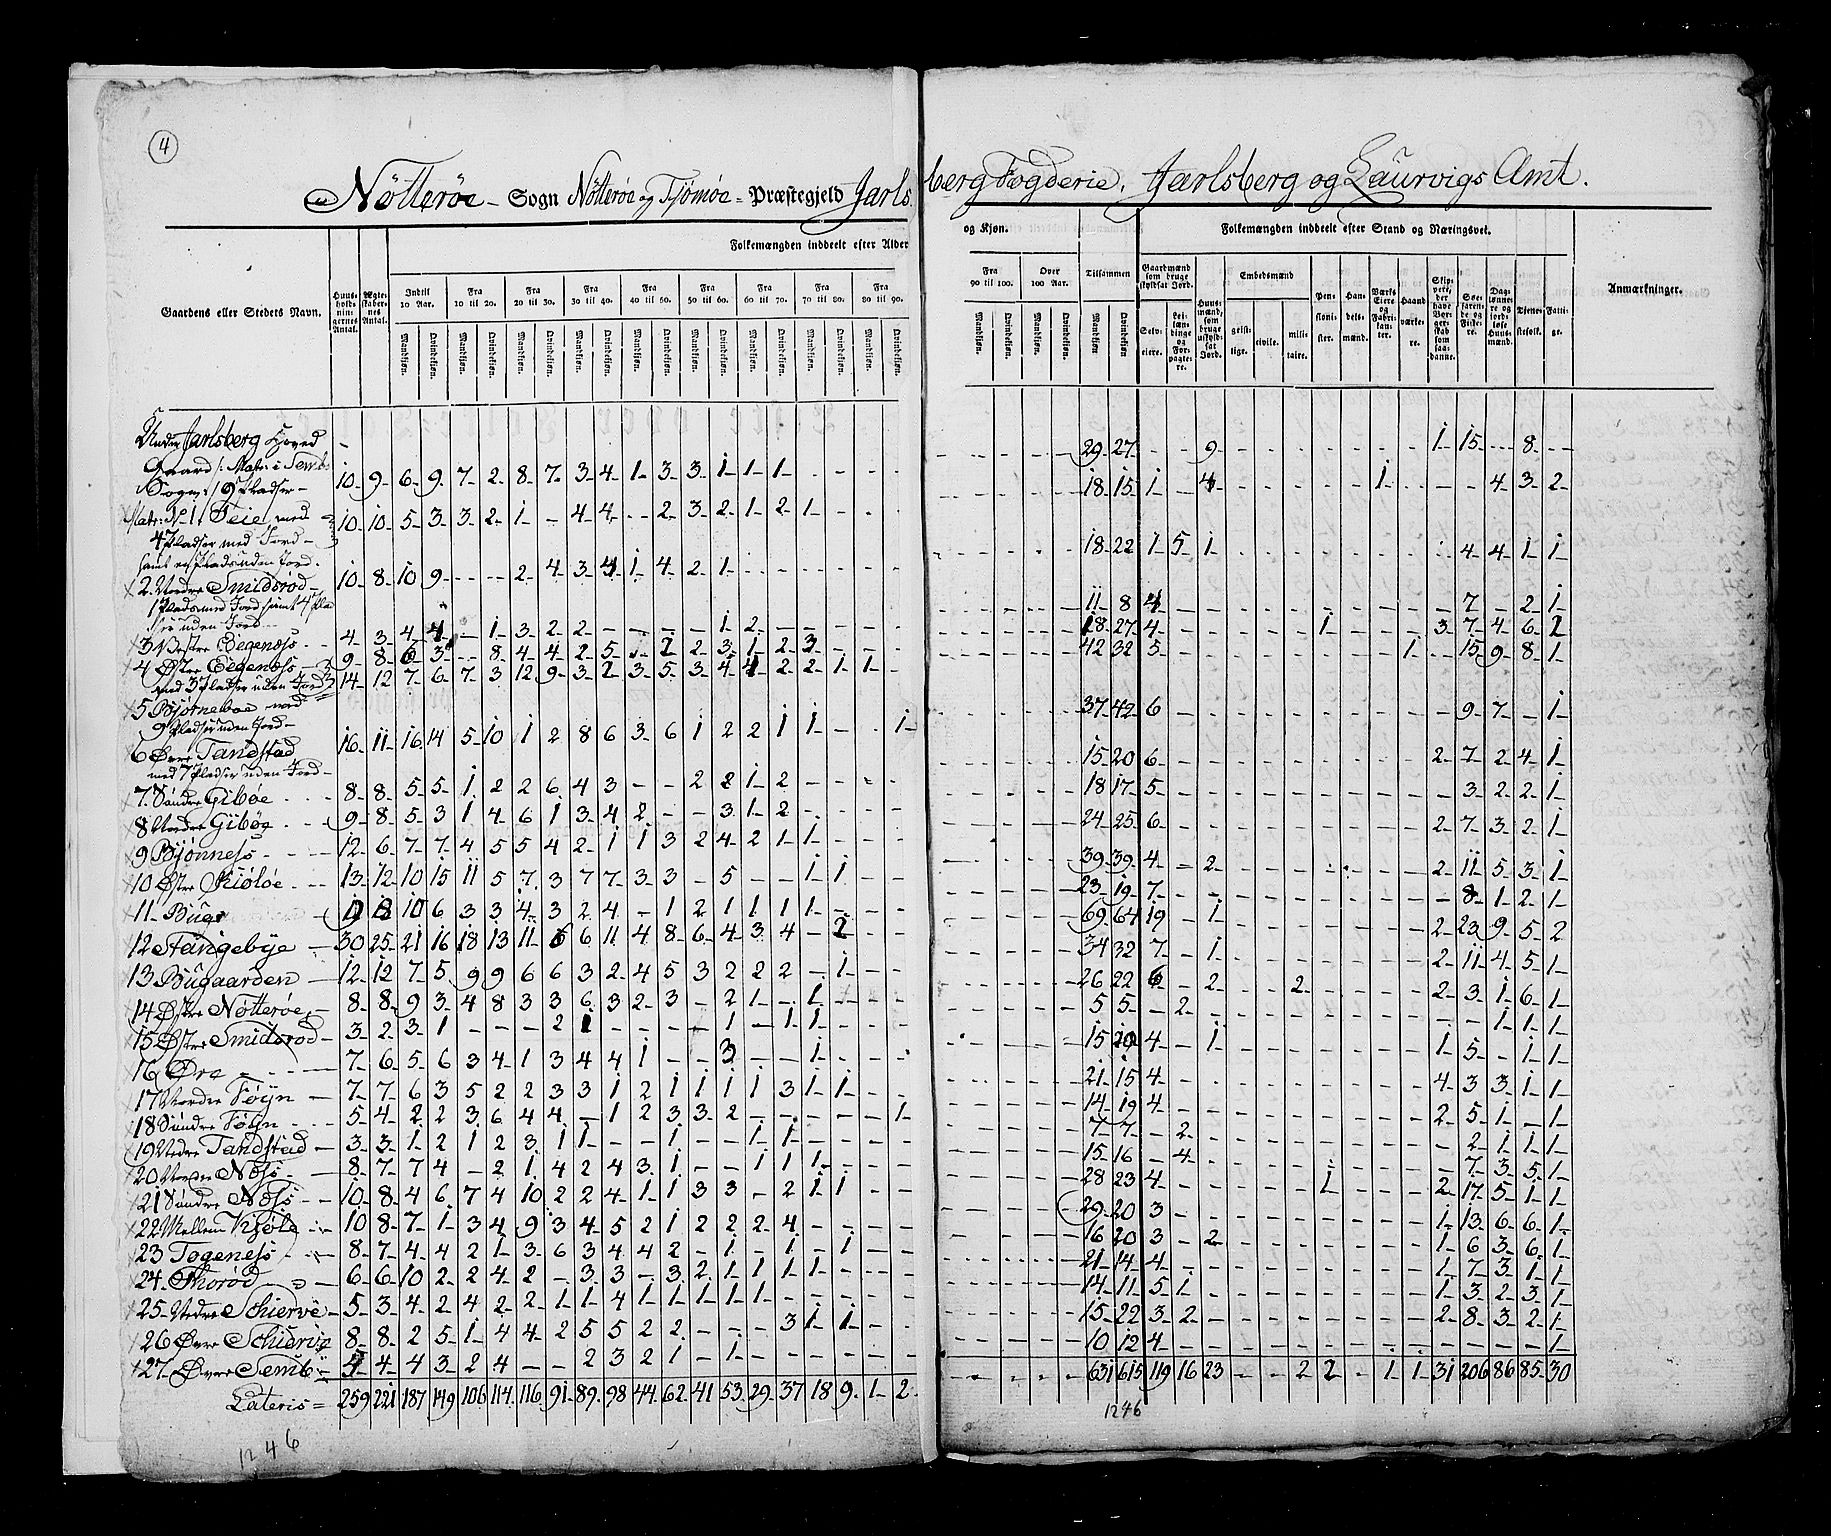 4
Nötterøe Sogn Nötterøe og Tjömöe Præstegjeld Jarlsberg Fogderie. Jarlsberg og Laurvigs Amt.
Gaardens eller Steders Navn.
Huusholdningernes Antal.
Ægteskabernes Antal.
Folkemængden inddeelt efter Alder og Kjøn.
Indtil 10 Aar.
Fra 10 til 20.
Fra 20 til 30.
Fra 30 til 40.
Fra 40 til 50.
Fra 50 til 60.
Fra 60 til 70.
Fra 70 til 80.
Fra 80 til 90.
Fra 90 til 100.
Over 100 Aar.
Tilsammen
Mandkjøn. Qvindekjøn.
Folkemængden inddeelt efter Stand og Næringsvei.
Gaardmænd som bruge skyldsat Jord.
Selveiere.
Leilændinge og Forpagtere.
Huusmænd, som bruge uskyldsat Jord.
Embedsmænd
geistlige. civile. militaire.
Pensionister.
Handelsmænd.
Værks Eiere og Fabrikanter.
Haandværkere.
Skippere, der have Borgerskab som saadanne.
Søefarende og Fiskere.
Daglønnere og jordløse Huusmænd.
Tjenestefolk.
Fattige.
Anmærkninger.
Under Jarlsberg Hoved
Gaard /: Matr: i Semb
Sogn :/ 9 Pladser 10 9 6 9 7 2 8 7 3 4 1 3 3 1 1 1 29 27 9 1 15 8
Matr: No 1. Teie med 10 10 5 3 3 2 1 - 4 4 2 3 2 1 2 1 18 15 1 4 1 4 3 2
4 Pladser med Jord
samt en Plads uden Jord.
2. Nordre Smidsrod 10 8 10 9 2 4 3 4 1 4 2 1 18 22 1 5 1 4 4 1 1
1 Plads med Jord samt 4 Pladser uden Jord 11 8 4 7 2 1
3 Vestre Eegenoss 4 3 4 4 1 3 2 2 1 2 28 27 4 1 3 7 4 6 2
4 Østre Eegenoss 9 8 6 3 8 4 4 2 5 2 2 3 1 2 3 42 32 5 1 15 9 8 1
med 3 Pladser uden Jord 14 12 7 6 7 3 12 9 3 2 3 5 3 4 4 2 2 1 1
5 Bjørneboe med
9 Pladser uden Jord 16 11 16 14 5 10 1 2 8 6 3 6 1 2 2 1 1 1 37 42 6 9 7 1
6 Øvre Tandstad
med 7 Pladser uden Jord 15 20 6 2 7 2 4 1
7. Söndre Gibøe 8 8 5 5 1 2 2 6 4 3 2 2 1 2 18 17 5 3 2 2 1
8 Nordre Gibøe 9 8 5 3 1 4 6 1 3 4 2 3 1 2 24 25 6 2 7 3 2 1
9 Bjönness 12 6 7 7 4 5 5 4 2 1 1 3 2 4 2 1 1 39 39 4 2 2 11 5 3 1
10 Østre Kiøløe 13 12 10 15 11 5 7 3 7 7 3 3 5 1 1 23 19 7 8 1 2 1
11 Buge 10 6 3 3 4 3 2 4 - 1 2 1 1 1 1 69 64 19 1 2 23 9 5 2
12 Stangebye 30 25 21 16 18 13 11 6 6 11 4 8 6 4 3 4 - 2 34 32 7 1 2 11 4 5 1
13 Bugaarden 12 12 7 5 9 9 6 6 3 2 4 5 3 2 2 2 - 1 26 22 6 2 2 2 3 1 6 1
14 Østre Nötterøe 8 8 9 3 4 8 3 3 6 3 2 3 - 2 1 - 1 5 5 2 1 1 1
15 Østre Smidsrod 3 2 3 1 2 1 1 - 1 1 15 20 4 1 1 5 1 1
16 Øra 7 6 5 6 3 4 1 3 4 4 1 3 1 21 15 4 4 3 3 1 1
17 Nordre Föyn 7 7 6 3 5 2 2 3 3 1 2 1 1 1 1 3 1 1 14 19 4 2 5 1 1
18 Söndre Föyn 5 4 2 2 3 6 4 4 - 1 2 3 3 2 1 7 7 2 2 1 1 1
19 Nedre Tandstad 3 3 1 2 1 2 3 1 1 1 1 1 15 16 4 7 3 5 1
20 Nordre Nöss 8 7 7 4 - 2 1 4 2 4 3 1 1 1 1 28 23 4 1 2 17 5 1 1
21 Söndre Nöss 10 8 4 6 7 4 10 2 2 4 1 1 3 3 - 2 1 1 29 20 3 1 13 6 6 1
22 Mellem Kjöle 10 8 7 1 3 4 9 3 4 5 2 1 2 2 2 4 16 20 3 2 1 6 3 6 1
23 Togeness 8 7 4 4 2 1 3 6 3 4 4 2 - 1 - 1 - 1 21 14 4 1 7 3 1 1
24. Thorød 6 6 10 2 2 4 2 - 3 3 - 3 2 1 1 1 1 14 11 5 1 1 3 2 3 1
25 Nedre Schierve 5 3 4 2 4 2 2 1 1 4 1 1 1 1 1 15 22 3 2 2 8 3 2 1
26 Øvre Schierve 8 8 2 5 1 4 4 2 5 5 2 2 3 1 1 10 12 4 1
27 Øvre Semb 4 4 4 3 2 4 2 3 2 1 - 1
Lateris = 259 221 187 149 106 114 116 91 89 98 44 62 41 53 29 37 18 9 1 2 631 615 119 16 23 2 2 1 1 31 206 86 85 30
1246
1246